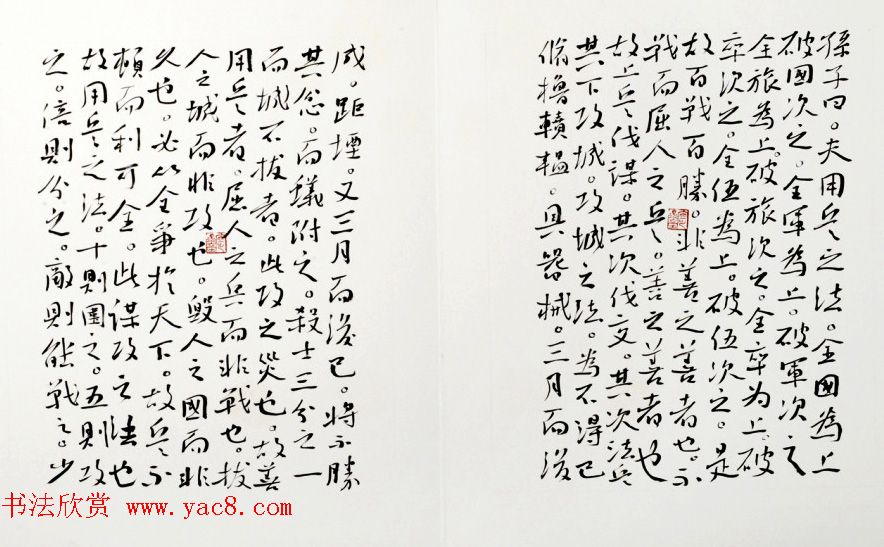 孫子曰。夫用兵之法。全國為上
破國次之。全軍為上。破軍次之
全旅為上。破旅次之。全卒为上。破
卒次之。全伍為上。破伍次之。是
故百战百勝。非善之善者也。不
戰而屈人之兵。善之善者也
故上兵伐謀。其次伐交。其次法兵
其下攻城。攻城之法。為不得已
脩櫓轒轀。具器械。三月而後
成。距堙。又三月而後已。將不勝
其忿。而蟻附之。殺士三分之一
而城不拔者。此攻之災也。故善
用兵者。屈人之兵而非戰也。拔
人之城而非攻也。毀人之國而非
久也。必以全爭於天下。故兵不
頓而利可全。此謀攻之法也
故用兵之法。十則圍之。五則攻
之。倍則分之。敵則能戰之。少
书法欣赏 www.yac8.com